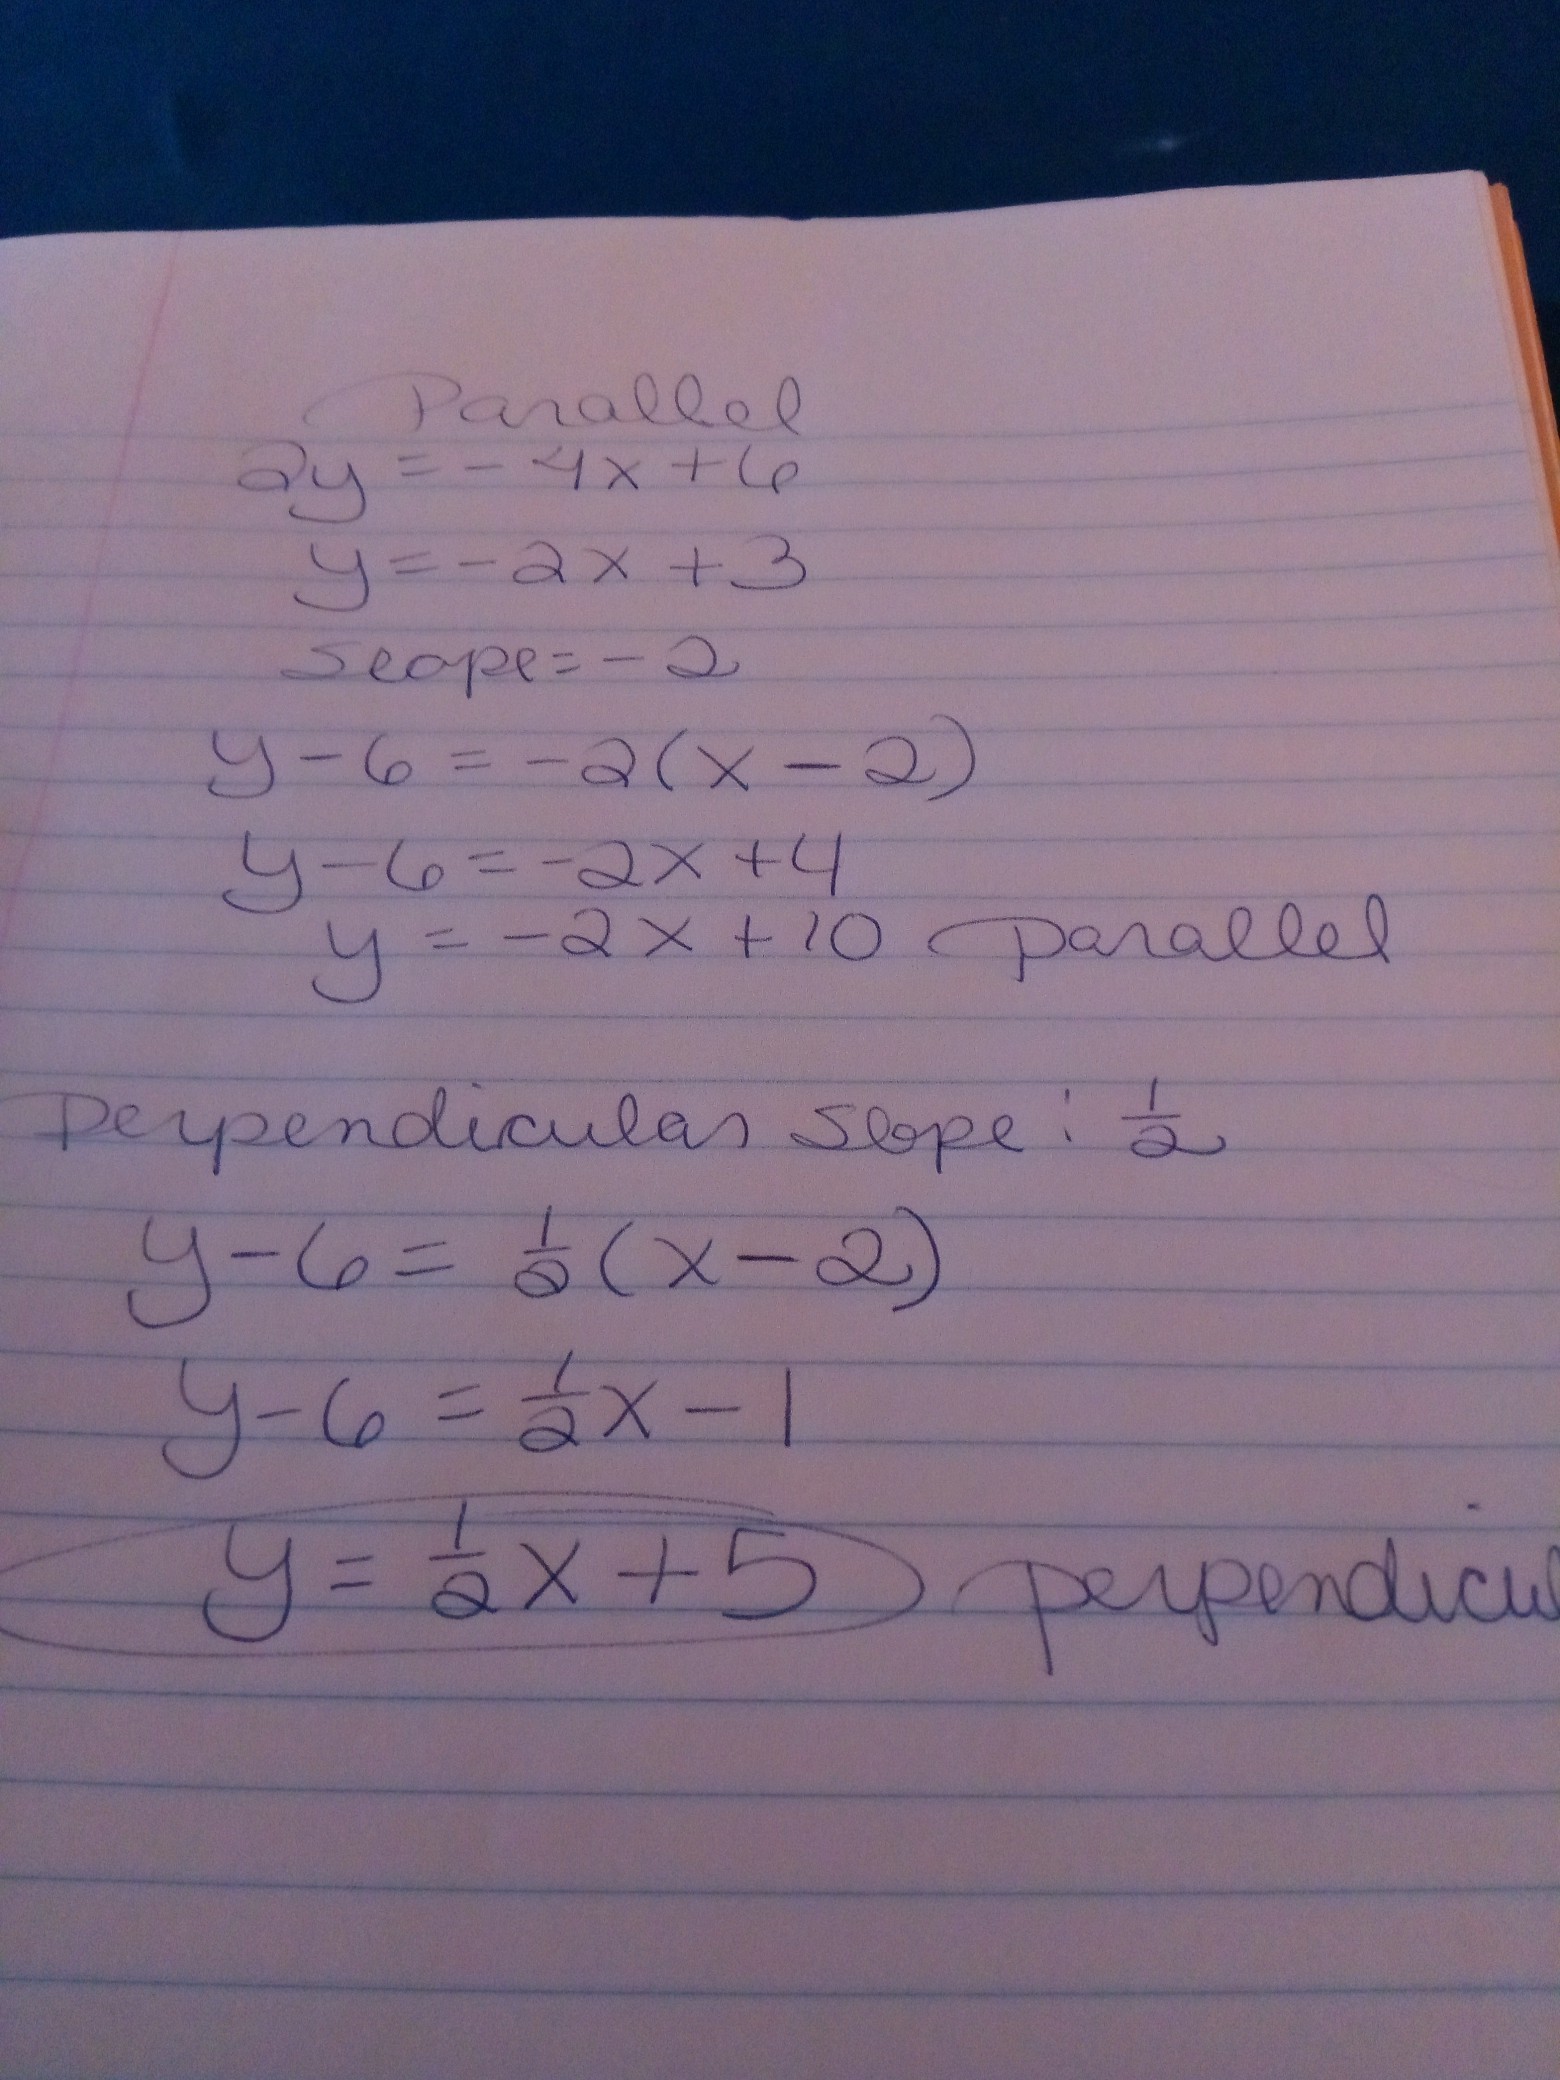 Parallel
2y = -4x + 6
y = -2x + 3
slope = -2
y - 6 = -2(x - 2)
y - 6 = -2x + 4
y = -2x + 10 parallel
Perpendicular slope: 1/2
y - 6 = 1/2(x - 2)
y - 6 = 1/2x - 1
y = 1/2x + 5 perpendicul